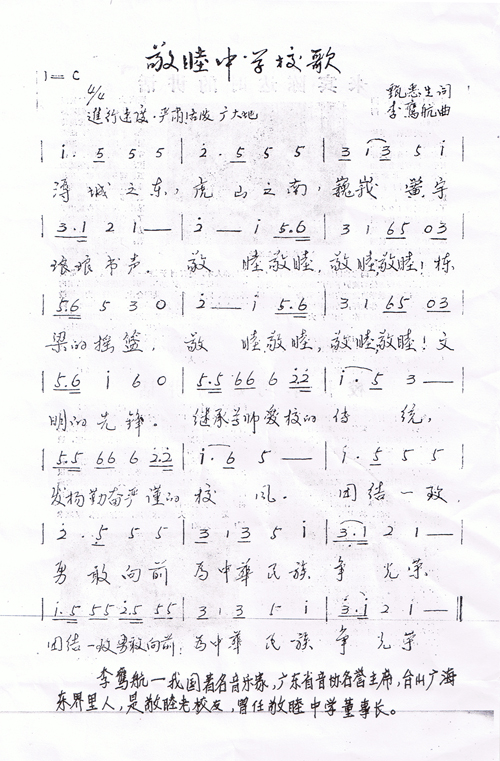 敬睦中学校歌
1=C
4/4
甄悉生词
進行速度·严肃活泼 广大地
李鹰航曲
i. 5 5 5 | 2. 5 5 5 | 3 i 3 5 i
溽城之东，虎山之南，巍峩黉宇
3.1 2 1 — | 2 — i 5.6 | 3 1 65 03
琅琅书声。敬睦敬睦，敬睦敬睦！栋
5.6 5 3 0 | 2 — i 5.6 | 3 1 65 03
梁的摇篮。敬睦敬睦，敬睦敬睦！文
5.6 i 6 0 | 5.5 66 6 22 | i. 5 3 —
明的先锋。继承尊师爱校的传统，
5.5 66 6 22 | i. 6 5 — | i. 5 5 5
发扬勤奋严谨的校风。团结一致
2. 5 5 5 | 3 i 3 5 i | 3.1 2 1 —
勇敢向前 为中華民族争光荣
i.5 55 2.5 55 | 3 i 3 5 i | 3.i 2 i —
团结一致勇敢向前，为中華民族争光荣
李鹰航—我国著名音乐家，广东省音协名誉主席，台山广海
东界里人，是敬睦老校友，曾任敬睦中学董事长。